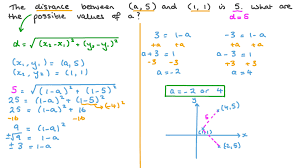 The distance between (a, 5) and (1, 1) is 5. What are
the possible values of a?
d = 5
d = √(x₂-x₁)² + (y₂-y₁)²
(x₁, y₁) = (a, 5)
(x₂, y₂) = (1, 1)
5 = √(1-a)² + (1-5)²
25 = (1-a)² + (1-5)²
(-4)²
-16 -16
9 = (1-a)²
±√9 = 1-a
±3 = 1-a
3 = 1-a
+a +a
a+3 = 1
-3 -3
a = -2
-3 = 1-a
+a +a
a-3 = 1
+3 +3
a = 4
a = -2 or 4
y
(4,5)
5
(1,1)
x